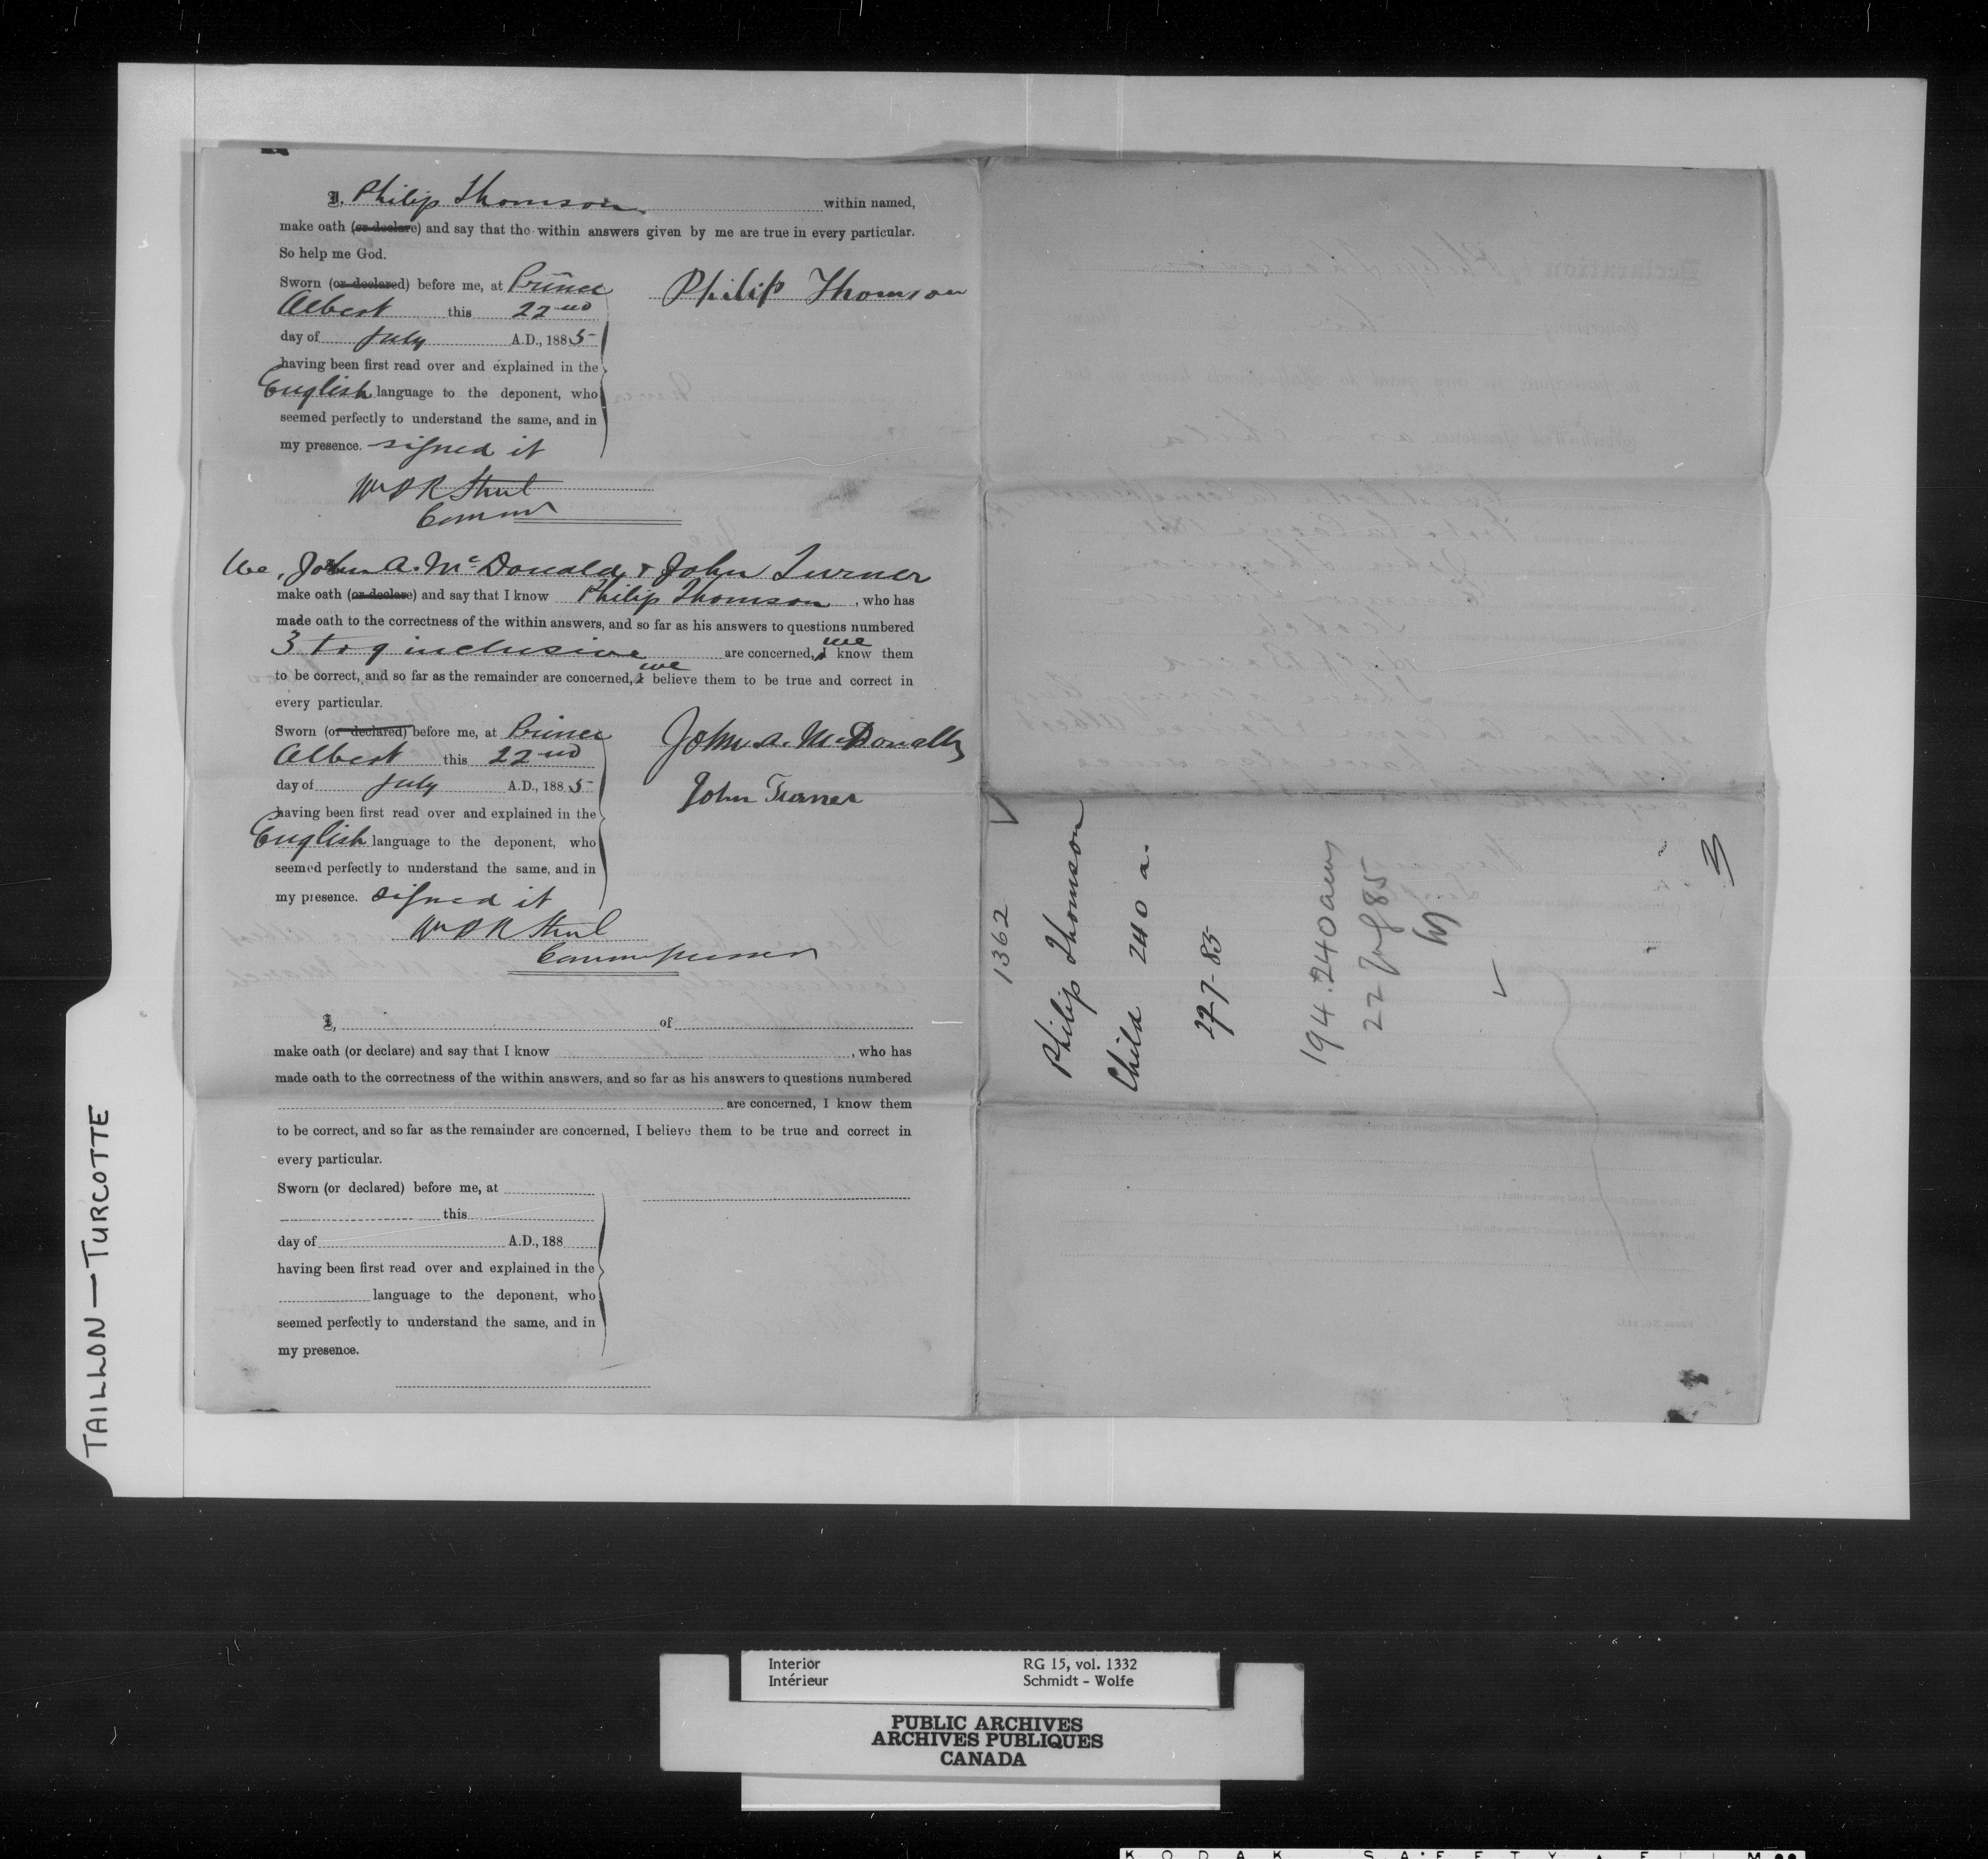 I, Philip Thomson within named,
make oath (or declare) and say that the within answers given by me are true in every particular.
So help me God.
Sworn (or declared) before me, at Prince
Albert this 22nd
day of July A.D., 1885
having been first read over and explained in the
English language to the deponent, who
seemed perfectly to understand the same, and in
my presence. signed it
Philip Thomson
Wm P R Street
Commr
We, John A. McDonald & John Turner
make oath (or declare) and say that I know Philip Thomson, who has
made oath to the correctness of the within answers, and so far as his answers to questions numbered
3 to 9 inclusive are concerned, I we know them
to be correct, and so far as the remainder are concerned, I we believe them to be true and correct in
every particular.
Sworn (or declared) before me, at Prince
Albert this 22nd
day of July A.D., 1885
having been first read over and explained in the
English language to the deponent, who
seemed perfectly to understand the same, and in
my presence. signed it
John A. McDonald
John Turner
Wm P R Street
Commissioner
I, of
make oath (or declare) and say that I know , who has
made oath to the correctness of the within answers, and so far as his answers to questions numbered
are concerned, I know them
to be correct, and so far as the remainder are concerned, I believe them to be true and correct in
every particular.
Sworn (or declared) before me, at
this
day of A.D., 188
having been first read over and explained in the
language to the deponent, who
seemed perfectly to understand the same, and in
my presence.
1362
Philip Thomson
Child 240 a.
27-7-85
194.240
22 85
3
TAILLON — TURCOTTE
Interior
Intérieur
RG 15, vol. 1332
Schmidt - Wolfe
PUBLIC ARCHIVES
ARCHIVES PUBLIQUES
CANADA
KODAK SAFETY FILM